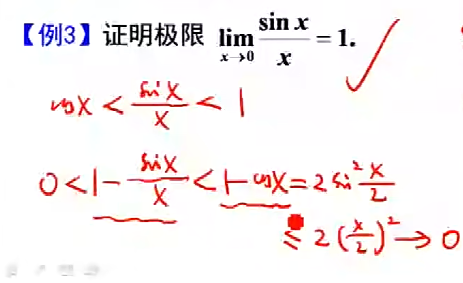 【例3】证明极限 lim x→0 sin x / x = 1.
cosx < sinx / x < 1
0 < 1 - sinx / x < 1 - cosx = 2 sin² x/2
≤ 2 (x/2)² → 0